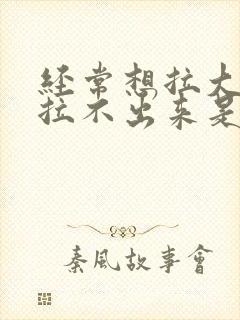 经常想拉大
拉不出来是
秦風故事會